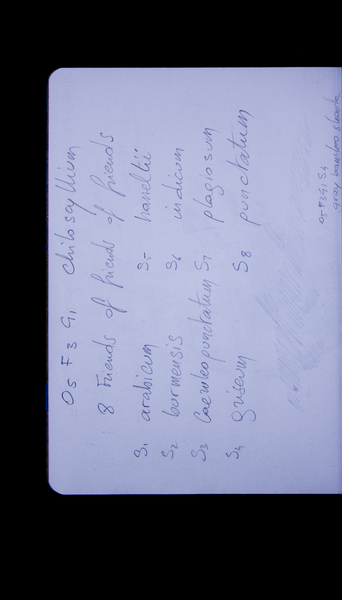 O5 F3 G1 Chiloscyllium
8 Friends of friends of friends
S1 arabicum S5 hasseltii
S2 burmensis S6 indicum
S3 Caeruleopunctatum S7 plagiosum
S4 griseum S8 punctatum
O5 F3 G1 S4
gray bamboo shark